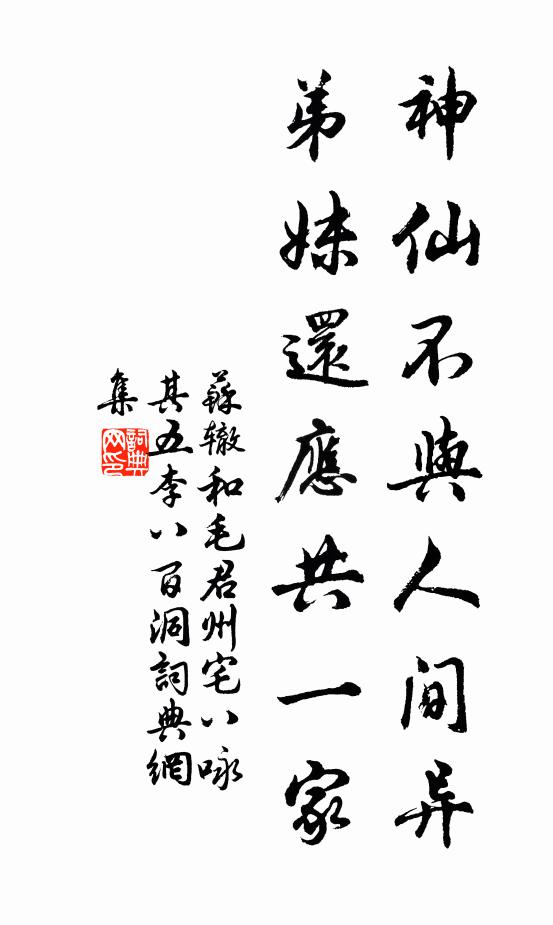 神仙不與人間异
弟妹還應共一家
蘇辙和毛君州宅八咏
其五李八百洞詞典網
集
詞典网印